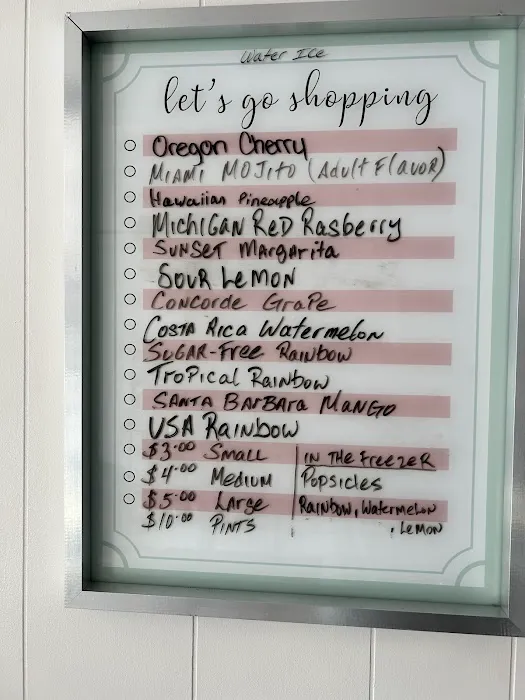 Water Ice
let's go shopping
Oregon Cherry
Miami Mojito (Adult Flavor)
Hawaiian Pineapple
Michigan Red Rasberry
Sunset Margarita
Sour Lemon
Concorde Grape
Costa Rica Watermelon
Sugar-Free Rainbow
Tropical Rainbow
Santa Barbara Mango
USA Rainbow
$3.00 Small
$4.00 Medium
$5.00 Large
$10.00 Pints
In The Freezer
Popsicles
Rainbow, Watermelon
, Lemon